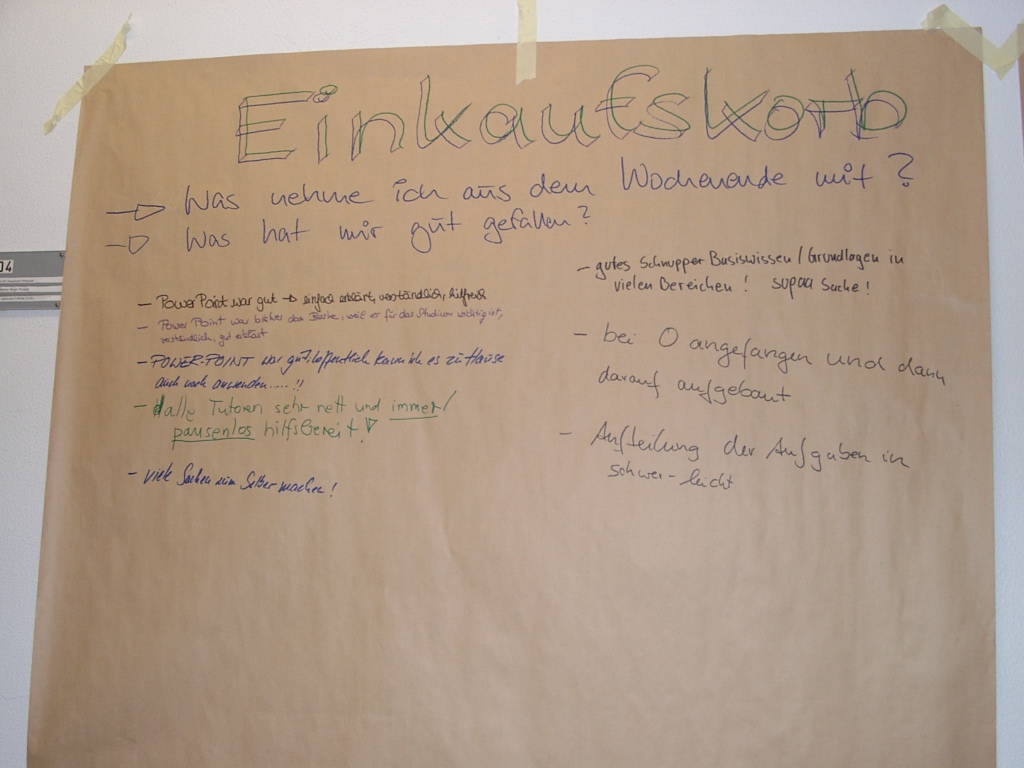 Einkaufskorb
Was nehme ich aus dem Wochenende mit?
Was hat mir gut gefallen?
04
- PowerPoint war gut → einfach erklärt, verständlich, hilfreich
- Power Point war bisher das Beste, weil er für das Studium wichtig ist,
verständlich, gut erklärt
- POWER-POINT war gut, hoffentlich kann ich es zu Hause
auch noch anwenden.....!!
- alle Tutoren sehr nett und immer/
pausenlos hilfsbereit!
- viele Sachen zum Selber machen!
- gutes Schnupper Basiswissen/Grundlagen in
vielen Bereichen! supaa Sache!
- bei 0 angefangen und dann
darauf aufgebaut
- Aufteilung der Aufgaben in
schwer-leicht